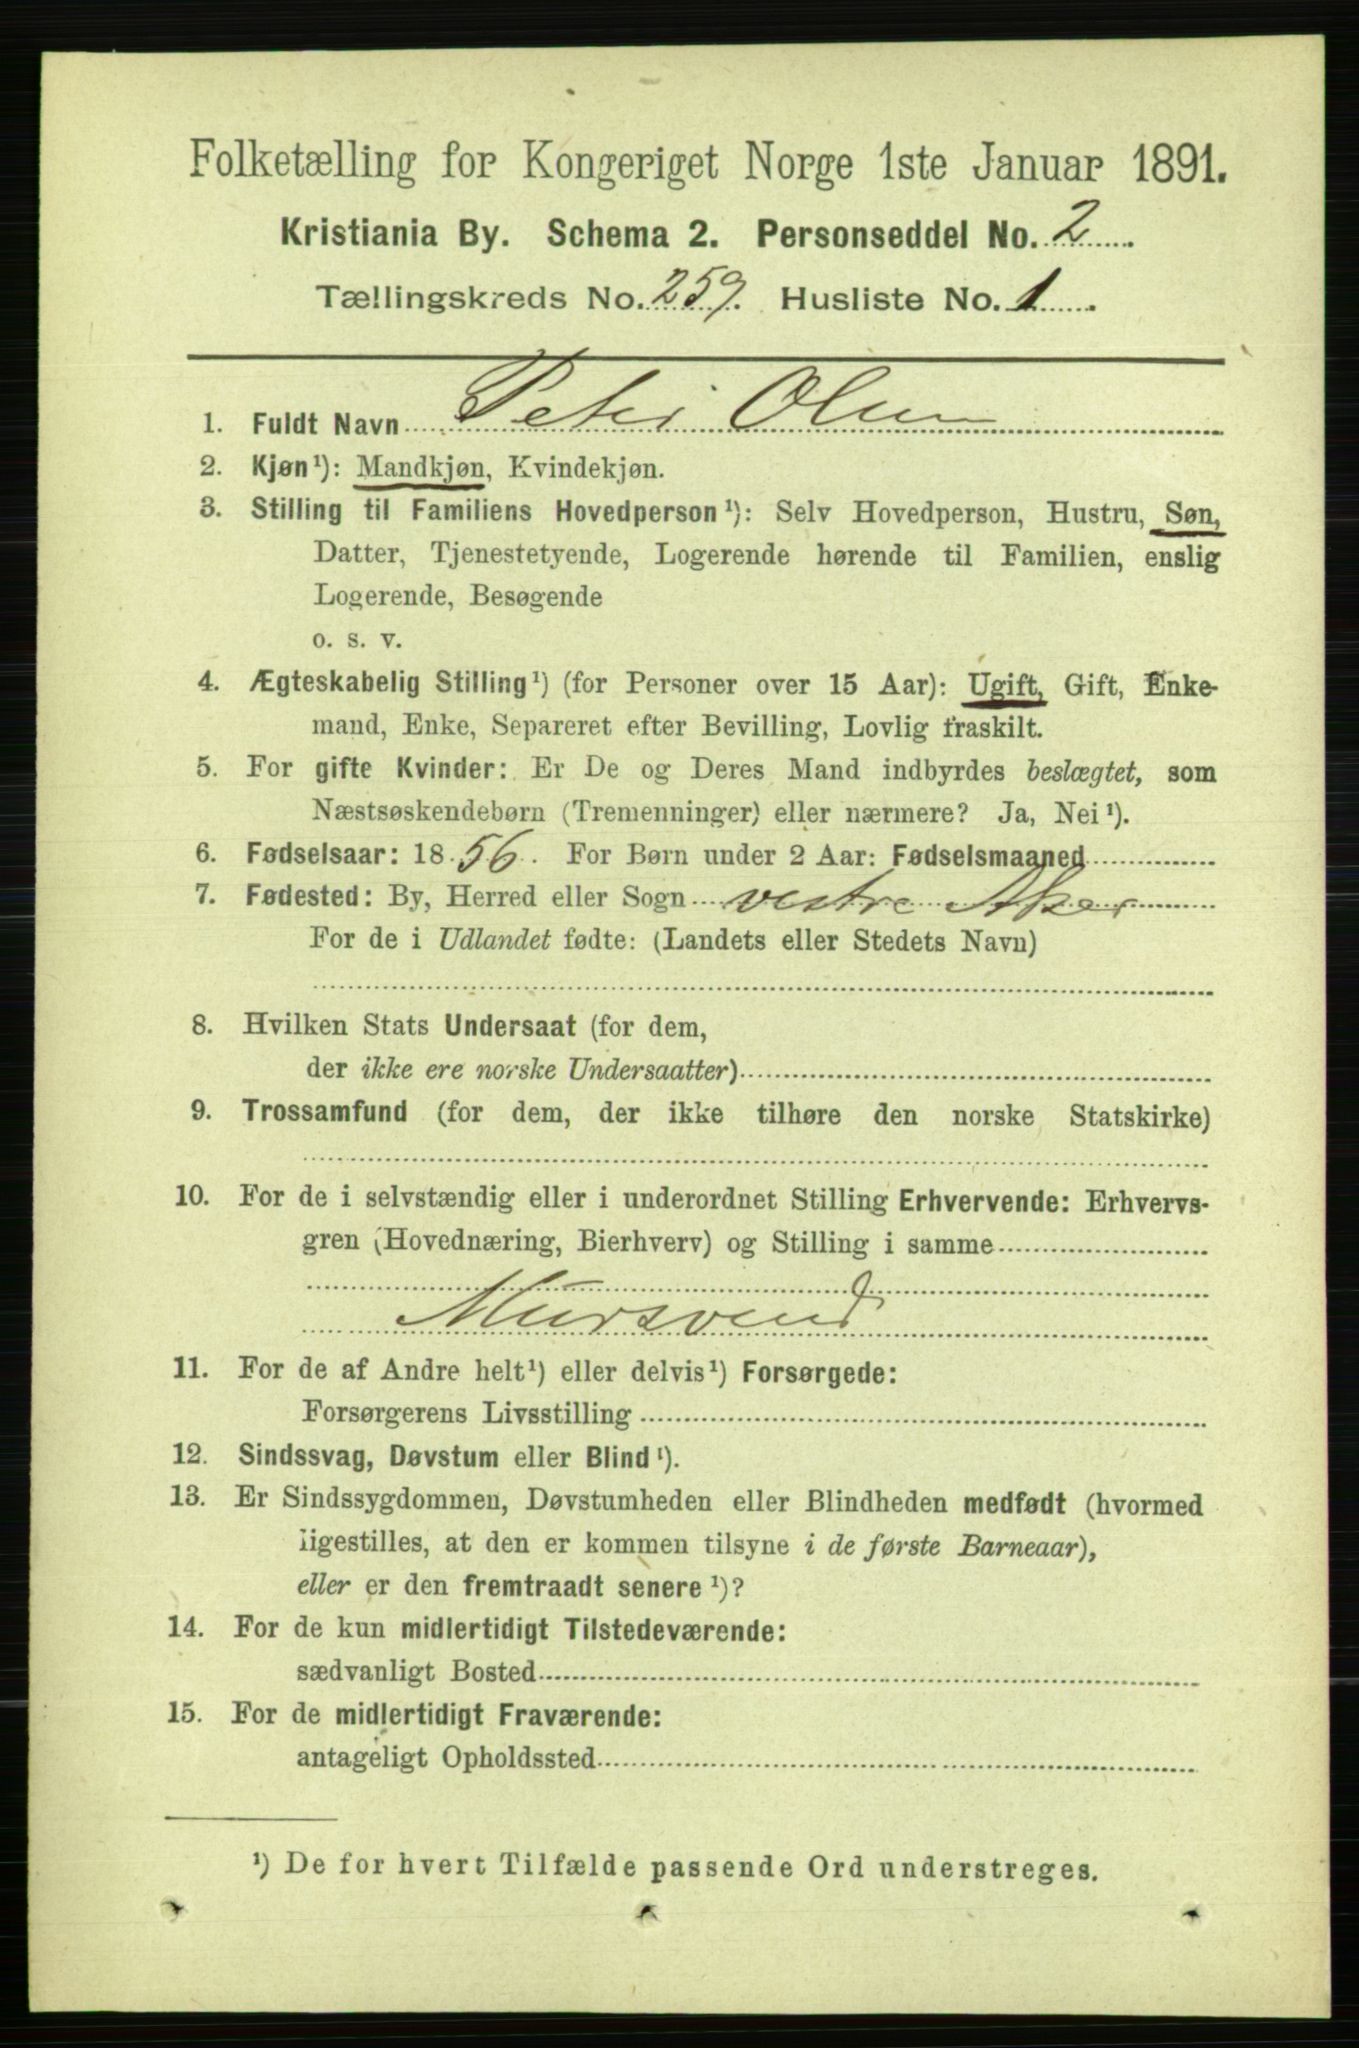 Folketælling for Kongeriget Norge 1ste Januar 1891.
Kristiania By. Schema 2. Personseddel No. 2.
Tællingskreds No. 259. Husliste No. 1.
1. Fuldt Navn Peter Olsen
2. Kjøn¹): Mandkjøn, Kvindekjøn.
3. Stilling til Familiens Hovedperson¹): Selv Hovedperson, Hustru, Søn,
Datter, Tjenestetyende, Logerende hørende til Familien, enslig
Logerende, Besøgende
o. s. v.
4. Ægteskabelig Stilling¹) (for Personer over 15 Aar): Ugift, Gift, Enke-
mand, Enke, Separeret efter Bevilling, Lovlig fraskilt.
5. For gifte Kvinder: Er De og Deres Mand indbyrdes beslægtet, som
Næstsøskendebørn (Tremenninger) eller nærmere? Ja, Nei¹).
6. Fødselsaar: 1856. For Børn under 2 Aar: Fødselsmaaned
7. Fødested: By, Herred eller Sogn vestre Aker
For de i Udlandet fødte: (Landets eller Stedets Navn)
8. Hvilken Stats Undersaat (for dem,
der ikke ere norske Undersaatter)
9. Trossamfund (for dem, der ikke tilhøre den norske Statskirke)
10. For de i selvstændig eller i underordnet Stilling Erhvervende: Erhvervs-
gren (Hovednæring, Bierhverv) og Stilling i samme
Mursvend
11. For de af Andre helt¹) eller delvis¹) Forsørgede:
Forsørgerens Livsstilling
12. Sindssvag, Døvstum eller Blind¹).
13. Er Sindssygdommen, Døvstumheden eller Blindheden medfødt (hvormed
ligestilles, at den er kommen tilsyne i de første Barneaar),
eller er den fremtraadt senere¹)?
14. For de kun midlertidigt Tilstedeværende:
sædvanligt Bosted
15. For de midlertidigt Fraværende:
antageligt Opholdssted
¹) De for hvert Tilfælde passende Ord understreges.